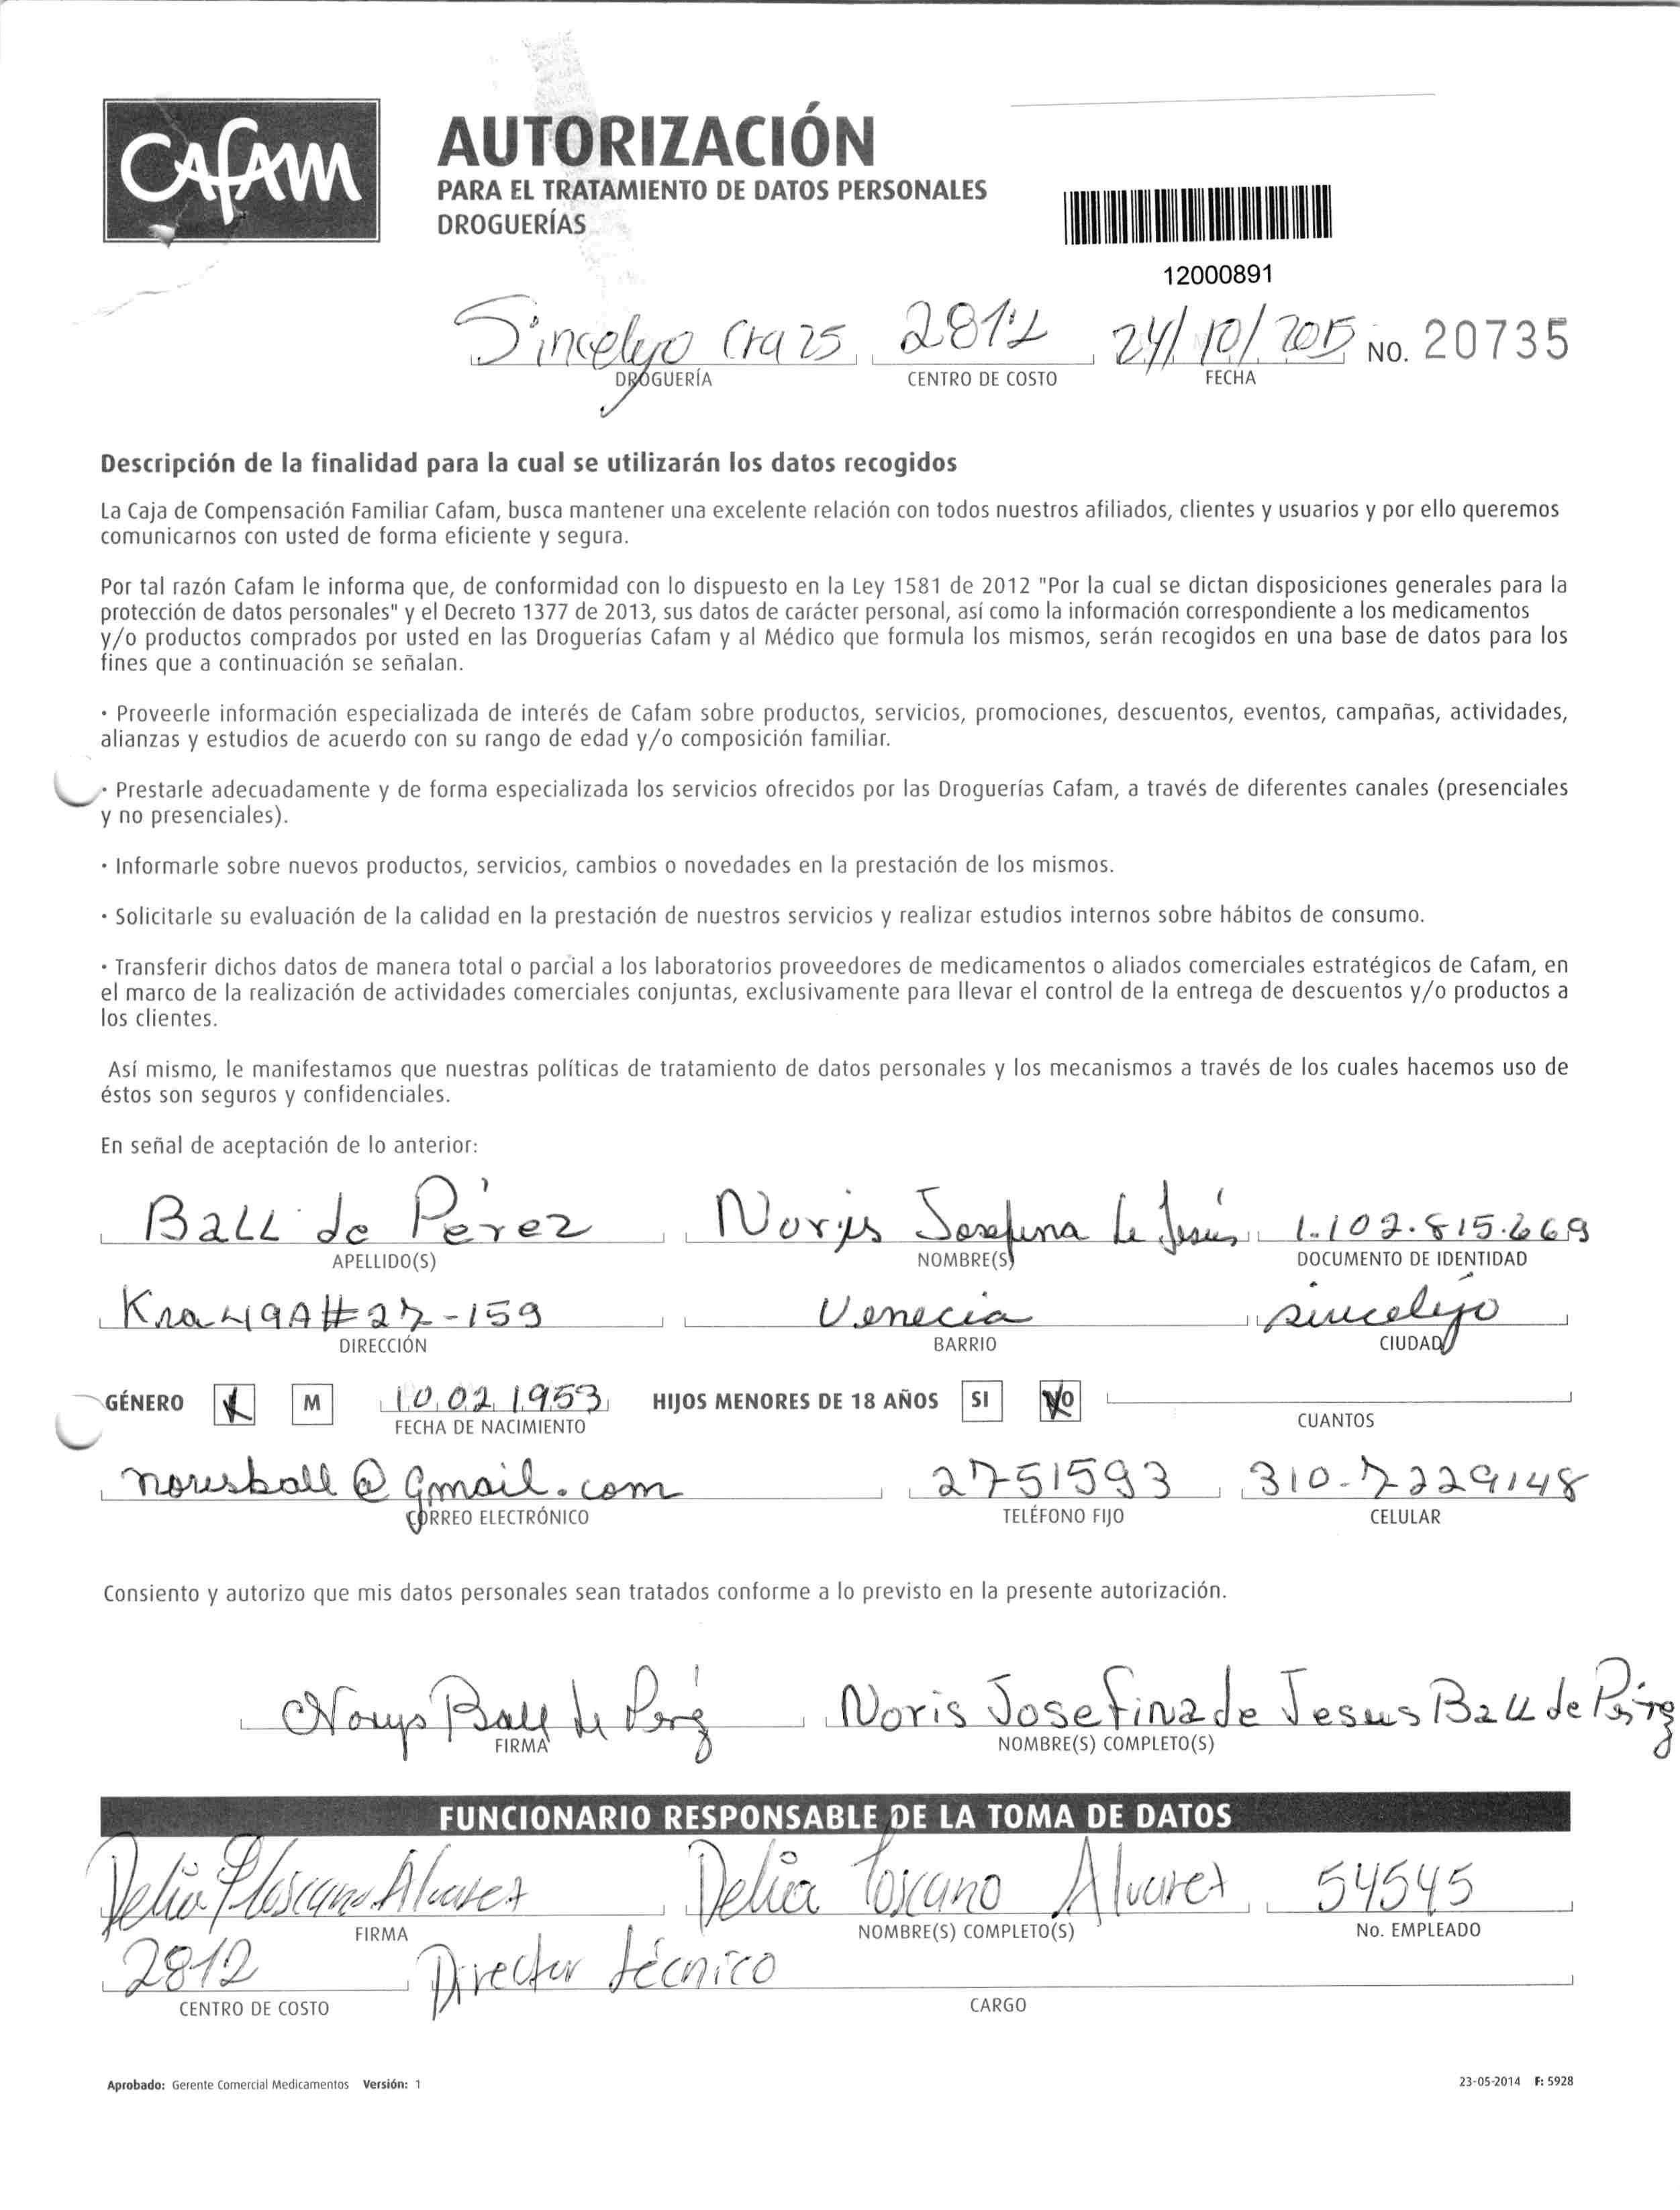 Cafam
AUTORIZACIÓN
PARA EL TRATAMIENTO DE DATOS PERSONALES
DROGUERÍAS
12000891
Sincelejo Cra 25 2812 24/10/2015 NO. 20735
DROGUERÍA CENTRO DE COSTO FECHA
Descripción de la finalidad para la cual se utilizarán los datos recogidos
La Caja de Compensación Familiar Cafam, busca mantener una excelente relación con todos nuestros afiliados, clientes y usuarios y por ello queremos
comunicarnos con usted de forma eficiente y segura.
Por tal razón Cafam le informa que, de conformidad con lo dispuesto en la Ley 1581 de 2012 "Por la cual se dictan disposiciones generales para la
protección de datos personales" y el Decreto 1377 de 2013, sus datos de carácter personal, así como la información correspondiente a los medicamentos
y/o productos comprados por usted en las Droguerías Cafam y al Médico que formula los mismos, serán recogidos en una base de datos para los
fines que a continuación se señalan.
· Proveerle información especializada de interés de Cafam sobre productos, servicios, promociones, descuentos, eventos, campañas, actividades,
alianzas y estudios de acuerdo con su rango de edad y/o composición familiar.
· Prestarle adecuadamente y de forma especializada los servicios ofrecidos por las Droguerías Cafam, a través de diferentes canales (presenciales
y no presenciales).
· Informarle sobre nuevos productos, servicios, cambios o novedades en la prestación de los mismos.
· Solicitarle su evaluación de la calidad en la prestación de nuestros servicios y realizar estudios internos sobre hábitos de consumo.
· Transferir dichos datos de manera total o parcial a los laboratorios proveedores de medicamentos o aliados comerciales estratégicos de Cafam, en
el marco de la realización de actividades comerciales conjuntas, exclusivamente para llevar el control de la entrega de descuentos y/o productos a
los clientes.
Así mismo, le manifestamos que nuestras políticas de tratamiento de datos personales y los mecanismos a través de los cuales hacemos uso de
éstos son seguros y confidenciales.
En señal de aceptación de lo anterior:
Ball de Pérez Norys Josefina de Jesús 1.102.815.669
APELLIDO(S) NOMBRE(S) DOCUMENTO DE IDENTIDAD
Kra 49A # 27-159 Venecia Sincelejo
DIRECCIÓN BARRIO CIUDAD
GÉNERO M 10 02 1953 HIJOS MENORES DE 18 AÑOS SI NO
FECHA DE NACIMIENTO CUANTOS
norisball@gmail.com 2751593 310-7229148
CORREO ELECTRÓNICO TELÉFONO FIJO CELULAR
Consiento y autorizo que mis datos personales sean tratados conforme a lo previsto en la presente autorización.
Norys Ball de Pérez Noris Josefina de Jesus Ball de Pérez
FIRMA NOMBRE(S) COMPLETO(S)
FUNCIONARIO RESPONSABLE DE LA TOMA DE DATOS
Delia Toscano Alvarez Delia Toscano Alvarez 54545
FIRMA NOMBRE(S) COMPLETO(S) No. EMPLEADO
2812 Director técnico
CENTRO DE COSTO CARGO
Aprobado: Gerente Comercial Medicamentos Versión: 1 23-05-2014 F: 5928